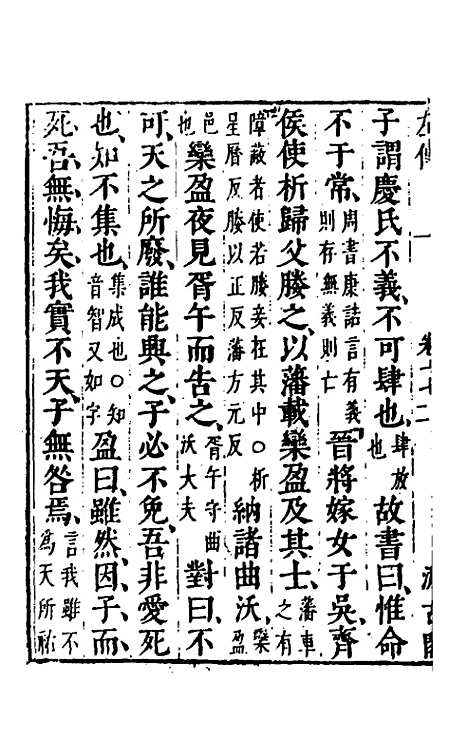 左傳 卷十七 二
子謂慶氏不義、不可肆也、肆放也故書曰、惟命
不于常、周書康誥言有義則存無義則亡晉將嫁女于吳、齊
侯使析歸父媵之、以藩載欒盈及其士、藩車之有
障蔽者使若媵妾在其中〇析星曆反媵以正反藩方元反納諸曲沃、欒盈
邑也欒盈夜見胥午而告之、胥午守曲沃大夫對曰、不
可、天之所廢、誰能興之、子必不免、吾非愛死
也、知不集也、集成也〇知音智又如字盈曰、雖然、因子而
死、吾無悔矣、我實不天、子無咎焉、言我雖不為天所祐